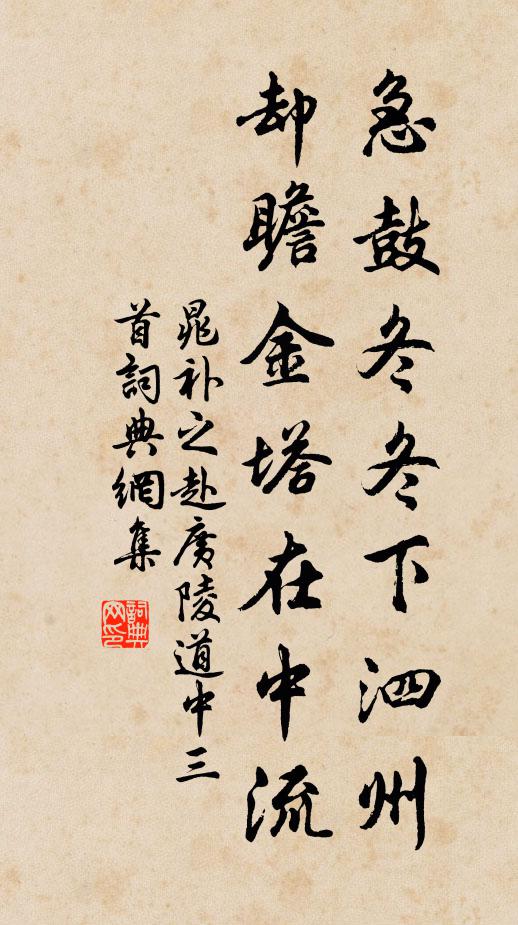 急鼓冬冬下泗州
却瞻金塔在中流
晁補之赴廣陵道中三
首詞典網集
詞典網印